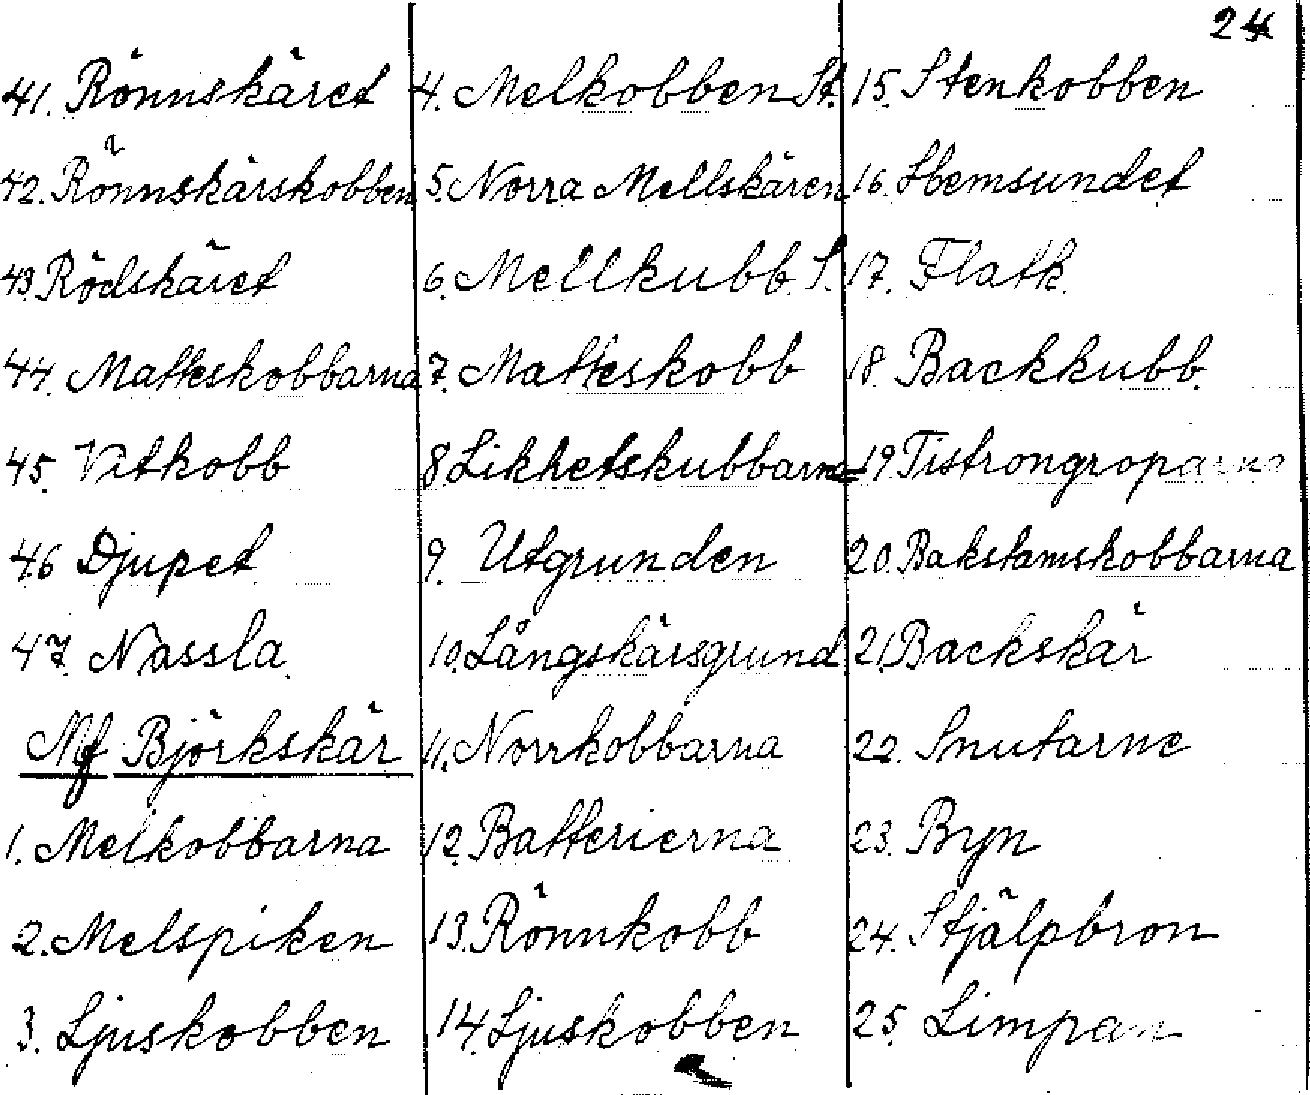 24
41. Rönnskäret
42. Rönnskärskobben
43 Rödskäret
44. Matteskobbarna
45. Vitkobb
46 Djupet
47. Nassla
Mf Björkskär
1. Melkobbarna
2. Melspiken
3. Ljuskobben
4. Melkobben St.
5. Norra Mellskären
6. Mellkubb S.
7. Matteskobb
8 Likhetskubbarna
9. Utgrunden
10. Långskärsgrund
11. Norrkobbarna
12. Batterierna
13. Rönnkobb
14. Ljuskobben
15. Stenkobben
16. Hemsundet
17. Flatk
18. Backkubb
19 Tistrongroparna
20. Bakstamskobbarna
21. Backskär
22. Snutarne
23. Byn
24. Stjälpbron
25. Limpan